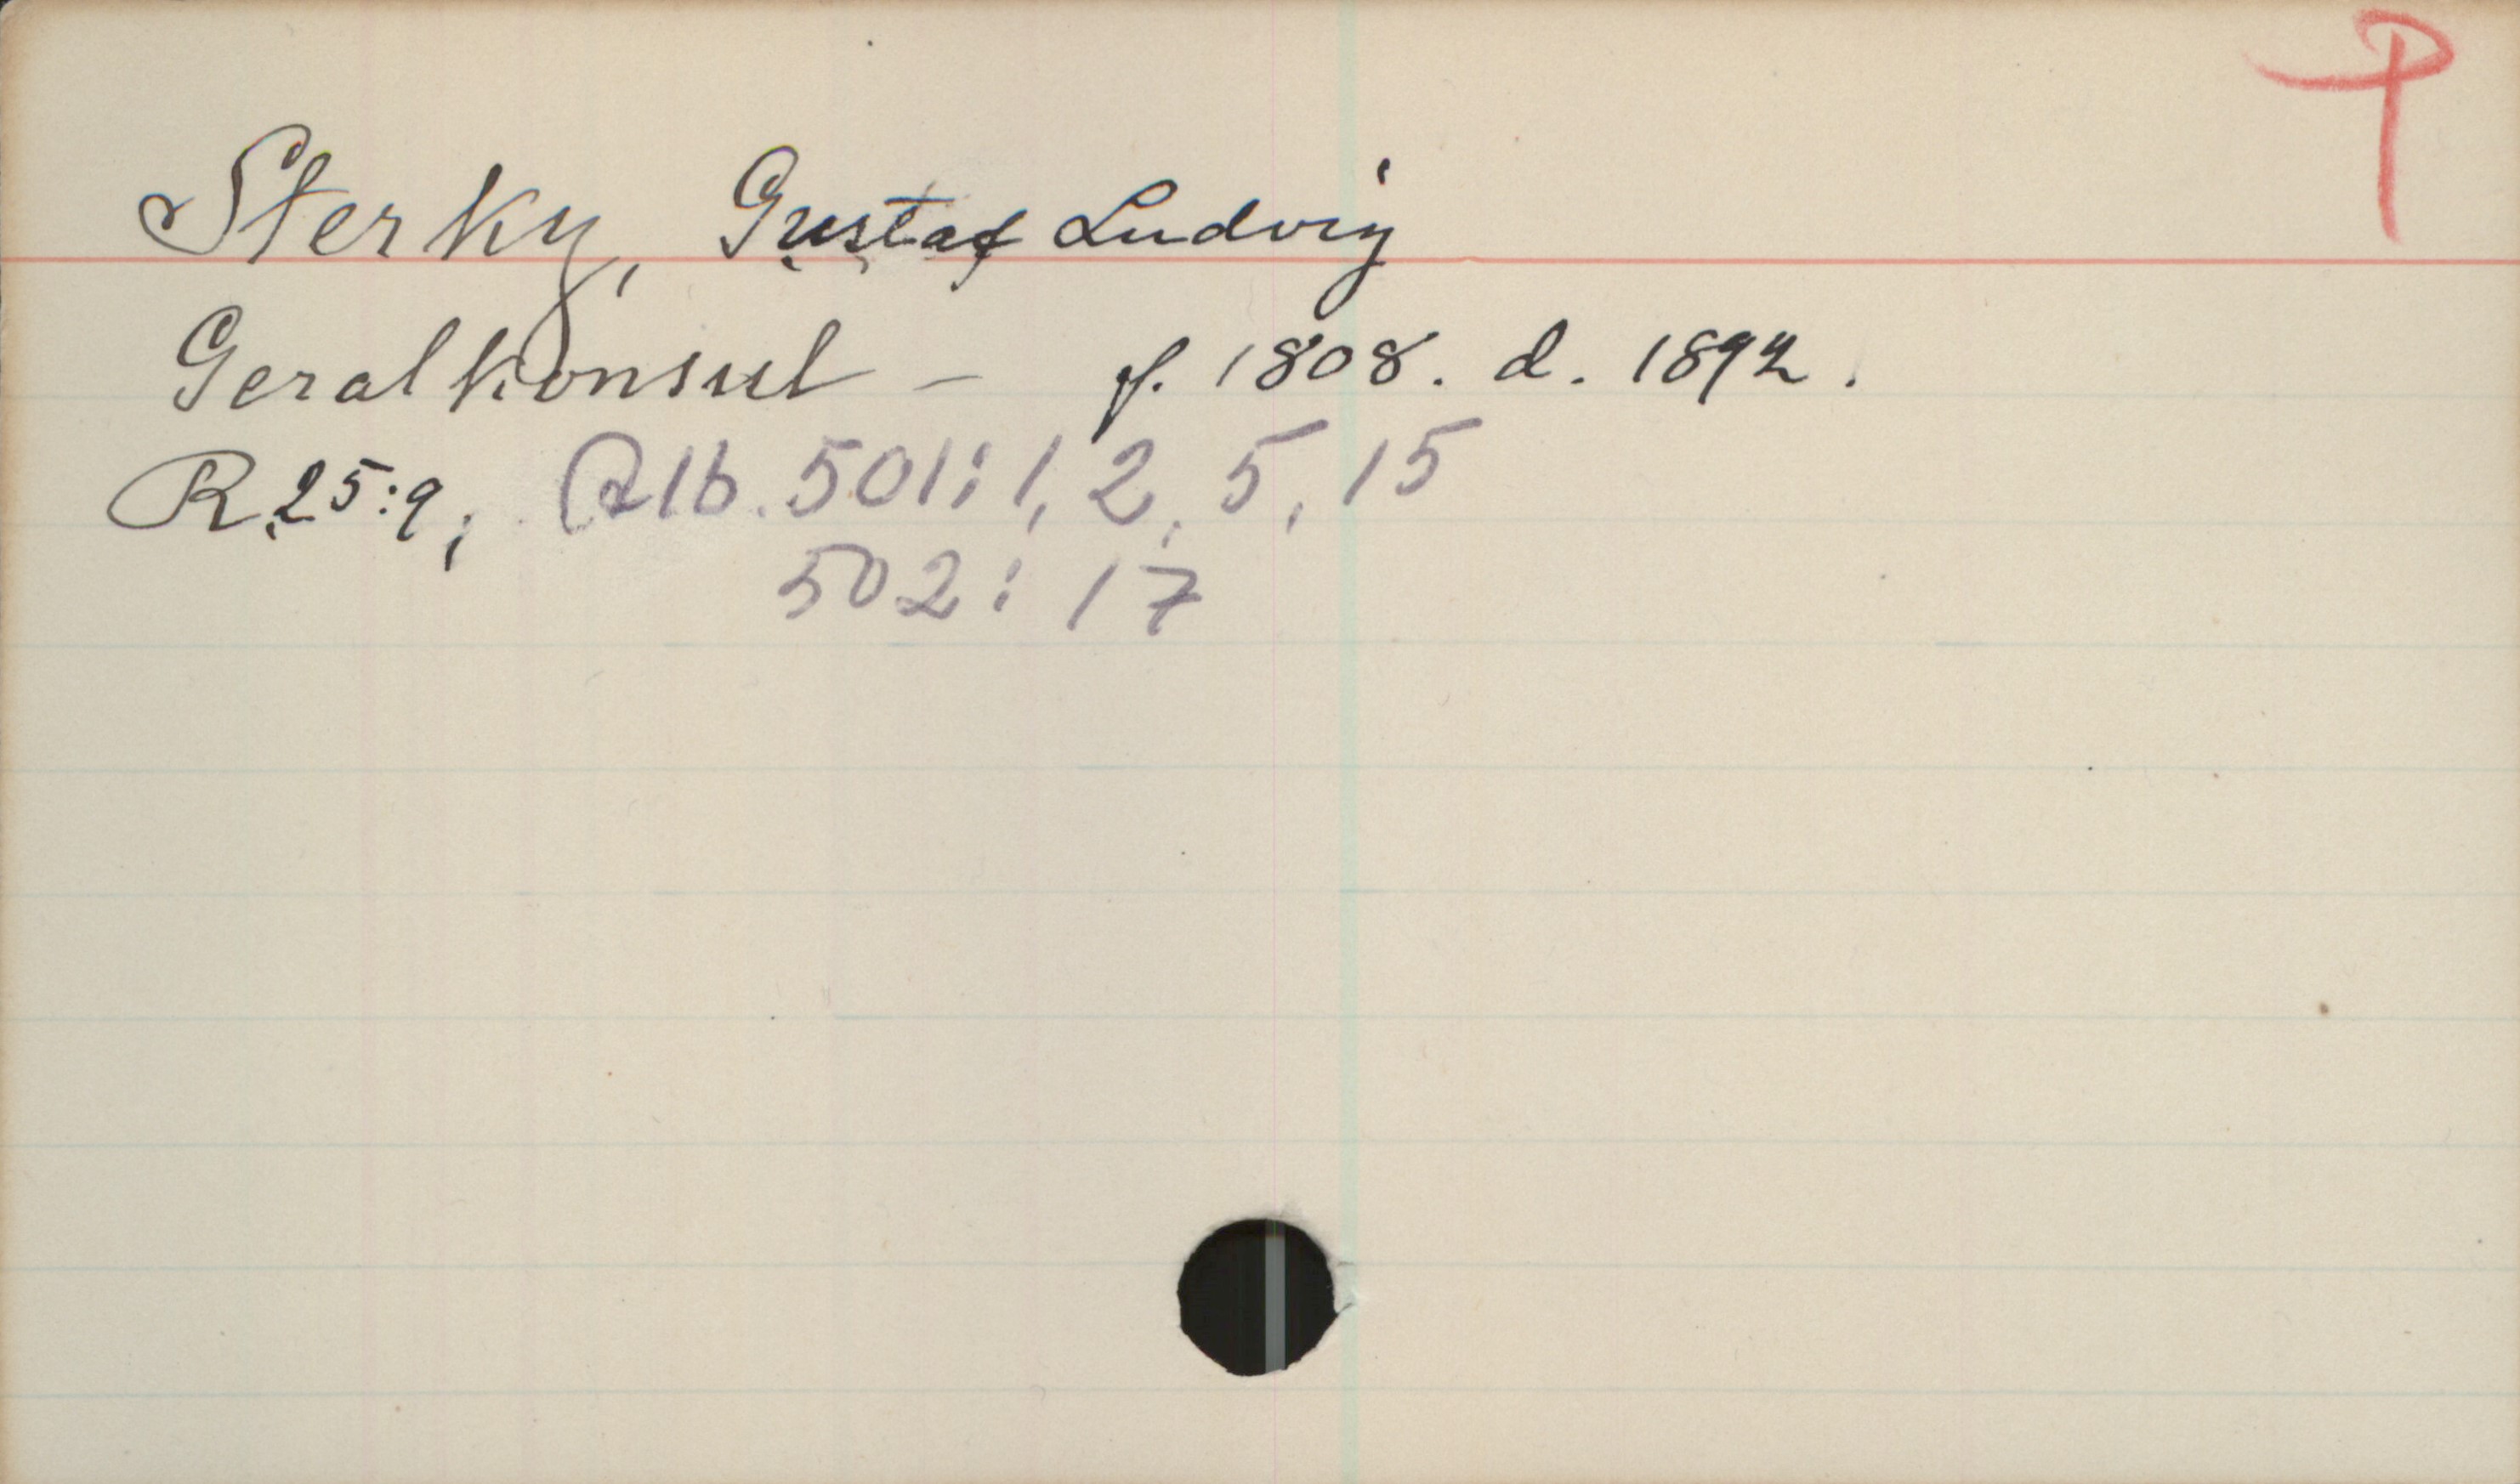 P
Sterky, Gustaf Ludvig
Geralkonsul - f. 1808. d. 1892.
R.25:9; Alb. 501: 1, 2, 5, 15
502: 17